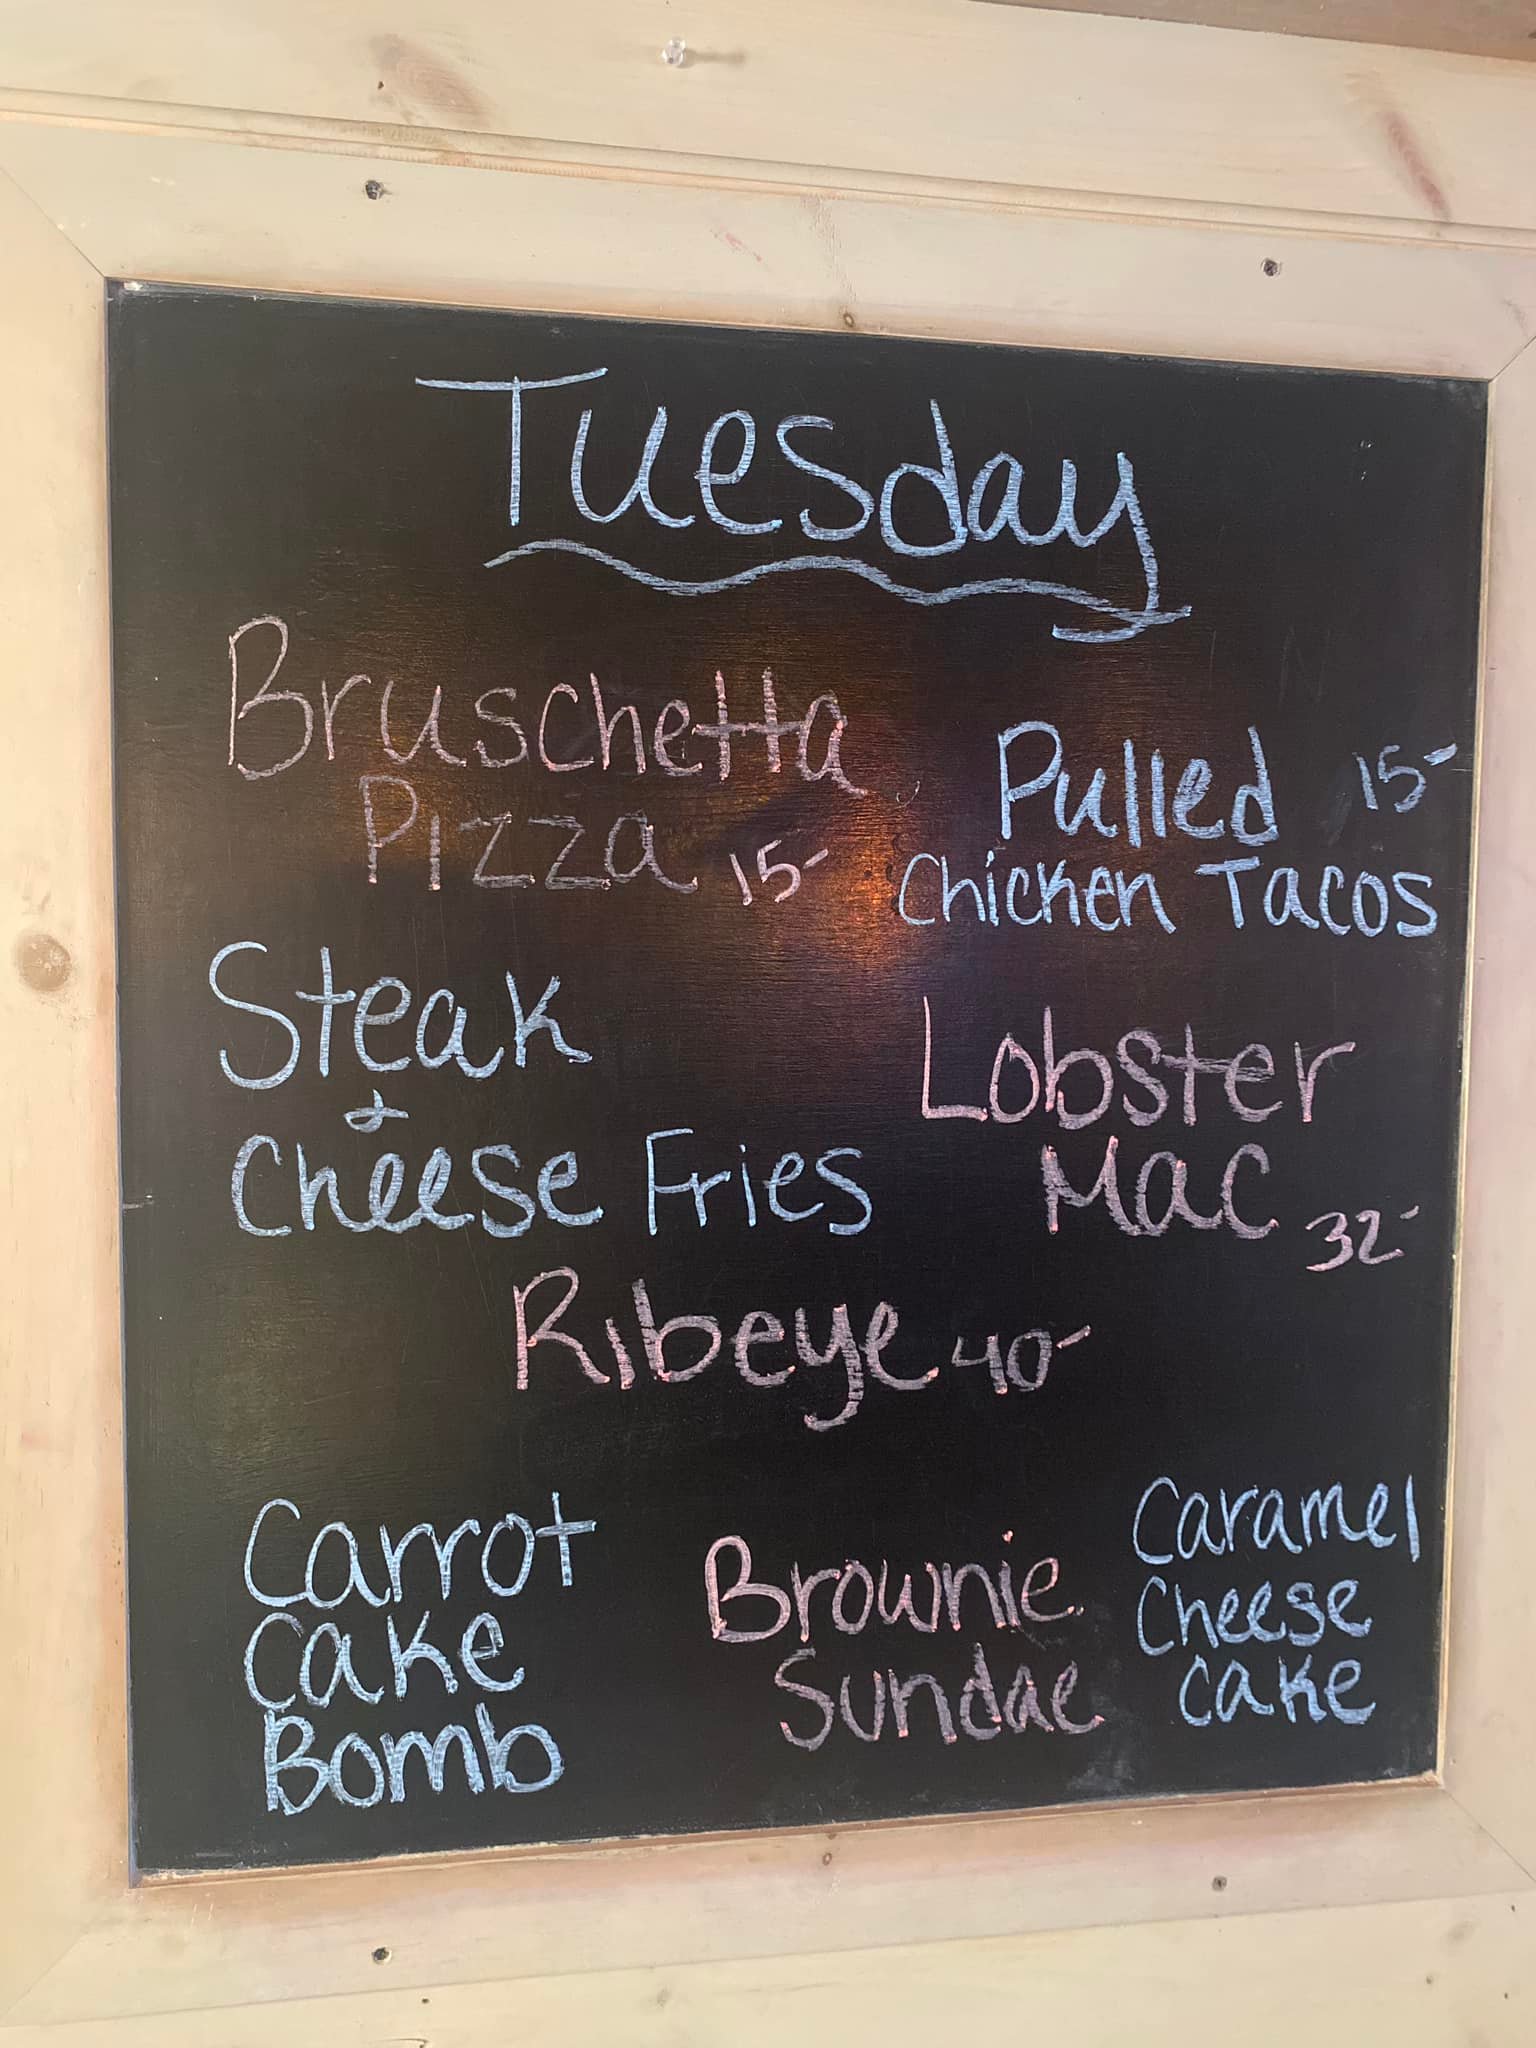 Tuesday
Bruschetta
Pizza 15-
Pulled 15-
Chicken Tacos
Steak
&
Cheese Fries
Lobster
Mac 32-
Ribeye 40-
Carrot
Cake
Bomb
Brownie
Sundae
Caramel
Cheese
cake